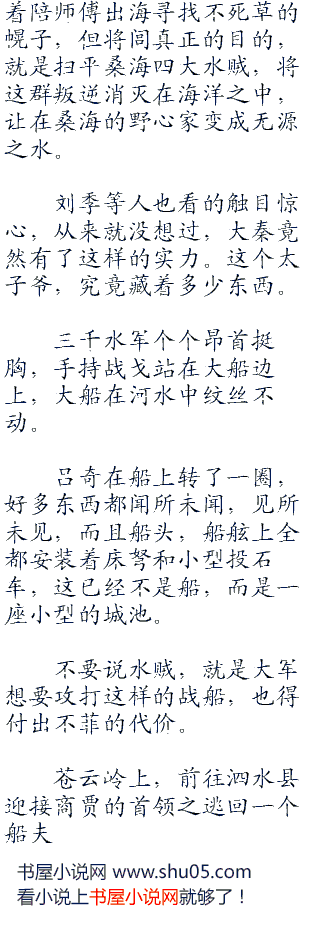 着陪师傅出海寻找不死草的
幌子，但将闾真正的目的，
就是扫平桑海四大水贼，将
这群叛逆消灭在海洋之中，
让在桑海的野心家变成无源
之水。
刘季等人也看的触目惊
心，从来就没想过，大秦竟
然有了这样的实力。这个太
子爷，究竟藏着多少东西。
三千水军个个昂首挺
胸，手持战戈站在大船边
上，大船在河水中纹丝不
动。
吕奇在船上转了一圈，
好多东西都闻所未闻，见所
未见，而且船头，船舷上全
都安装着床弩和小型投石
车，这已经不是船，而是一
座小型的城池。
不要说水贼，就是大军
想要攻打这样的战船，也得
付出不菲的代价。
苍云岭上，前往泗水县
迎接商贾的首领之逃回一个
船夫
书屋小说网 www.shu05.com
看小说上书屋小说网就够了！